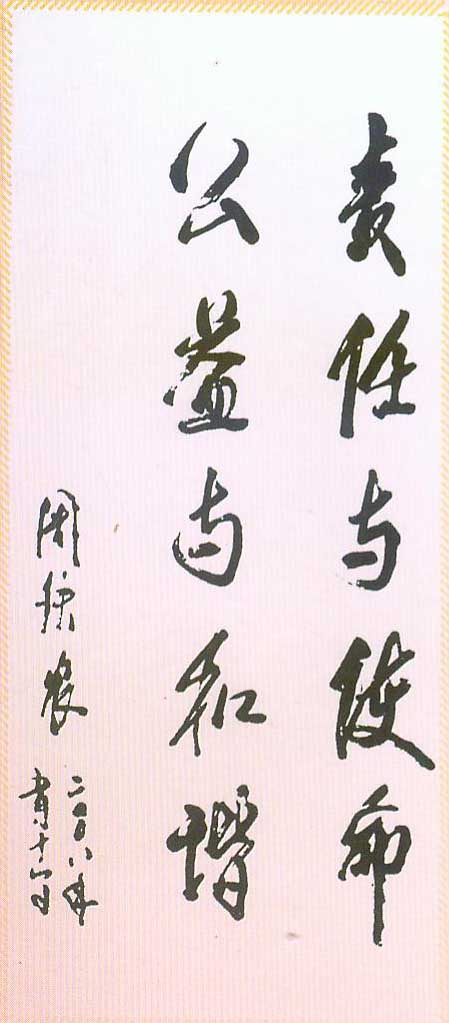 责任与使命
公益与和谐
周铁农
二〇〇八年
月十六日